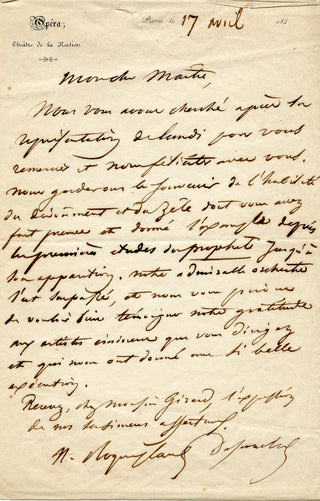 Opéra,
Théâtre de la Nation.
Paris, le 17 avril 184
Mon cher Maître,
Nous vous avons cherché après la
représentation de lundi pour vous
remercier et nous féliciter avec vous.
nous garderons le souvenir de l'habileté
du dévouement et du zèle dont vous avez
fait preuve et donné l'exemple depuis
les premières études du prophète jusqu'à
son apparition. notre admirable orchestre
s'est surpassé, et nous vous prions
de vouloir bien témoigner notre gratitude
aux artistes éminens que vous dirigez
et qui nous ont donné une si belle
exécution.
Recevez, cher Monsieur Girard, l'expression
de nos sentimens affectueux.
N. Roqueplan Duponchel